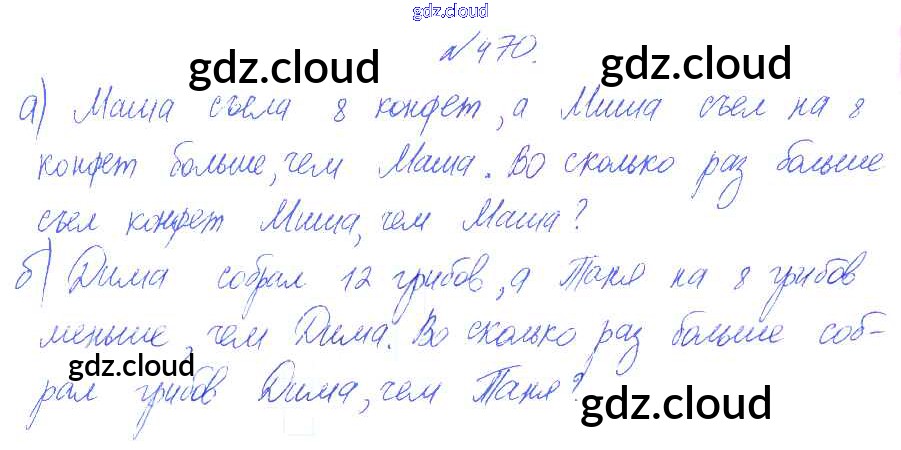 gdz.cloud
№470.
gdz.cloud gdz.cloud
а) Маша съела 8 конфет, а Миша съел на 8
конфет больше, чем Маша. Во сколько раз больше
съел конфет Миша, чем Маша?
б) Дима собрал 12 грибов, а Таня на 8 грибов
меньше, чем Дима. Во сколько раз больше соб-
gdz.cloud
рал грибов Дима, чем Таня?
gdz.cloud